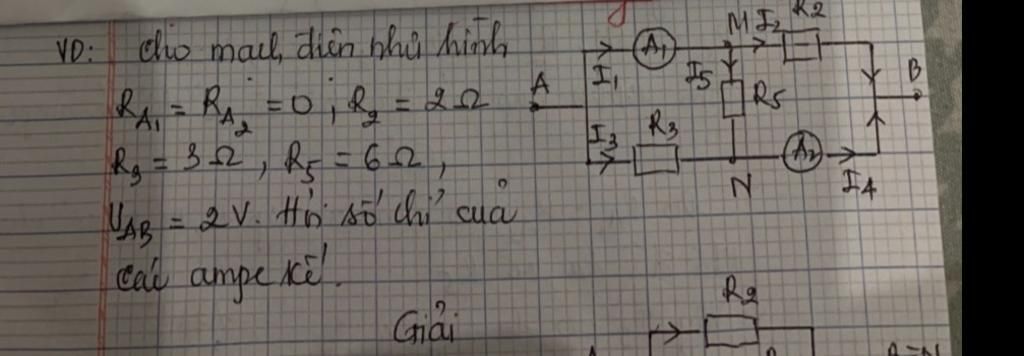 VD: Cho mạch điện như hình
R_A1 = R_A2 = 0 ; R2 = 2 Ω
R3 = 3 Ω , R5 = 6 Ω ,
U_AB = 2 V. Hỏi số chỉ của
các ampe kế.
Giải
A I1 A1 M I2 R2
I5 R5 B
I3 R3 N A2 I4
R2